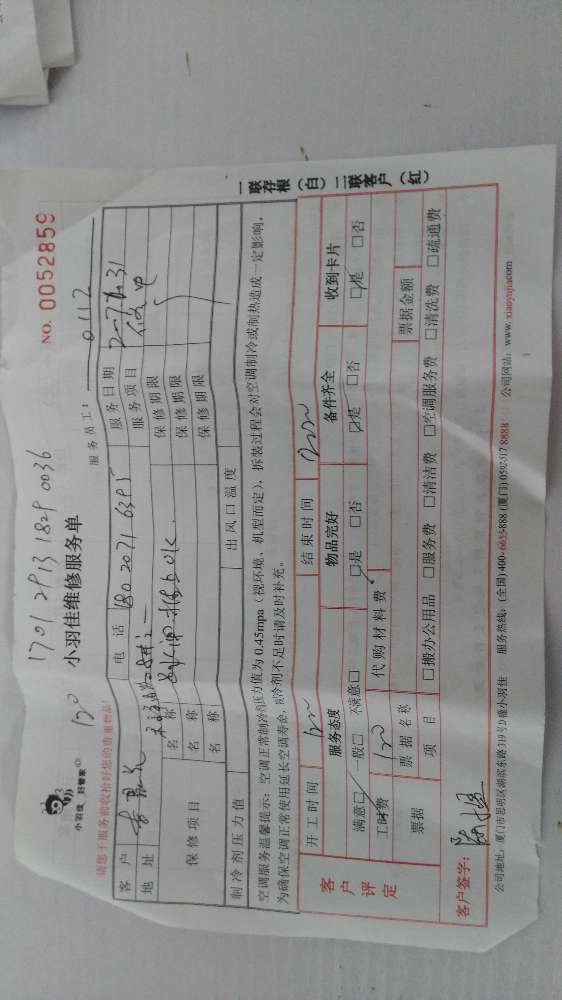 一联存根（白） 二联客户（红）
NO. 0052859
1701 2913 1829 0036
小羽佳 好管家
120 小羽佳维修服务单
服务员工: 0112
请您于服务前收拾好您的贵重物品!
客户 电话 180 2071 6395 服务日期
地址 服务项目
保修项目 名称 保修期限
名称 保修期限
名称 保修期限
制冷剂压力值 出风口温度
空调服务温馨提示: 空调正常制冷剂压力值为 0.45mpa（视环境、机型而定），拆装过程会对空调制冷或制热造成一定影响，
为确保空调正常使用延长空调寿命，制冷剂不足时请及时补充。
客户评定
开工时间 结束时间
服务态度 物品完好 备件齐全 收到卡片
满意□ 一般□ 不满意□ □是 □否 □是 □否 □是 □否
工时费 120 代购材料费
票据 票据名称 票据金额
项目 □搬办公用品 □服务费 □清洁费 □空调服务费 □清洗费 □疏通费
客户签字:
公司地址: 厦门市思明区湖滨东路319号D幢小羽佳 服务热线: (全国)400-6655-888 (厦门)0592-517 8888 公司网站: www.xiaoyujia.com